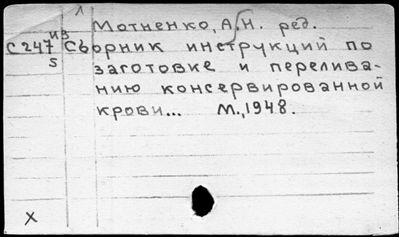 1
Мотненко, А.Н. ред.
из
С247 Сборник инструкций по
5 заготовке и перелива-
нию консервированной
крови... М., 1948.
X